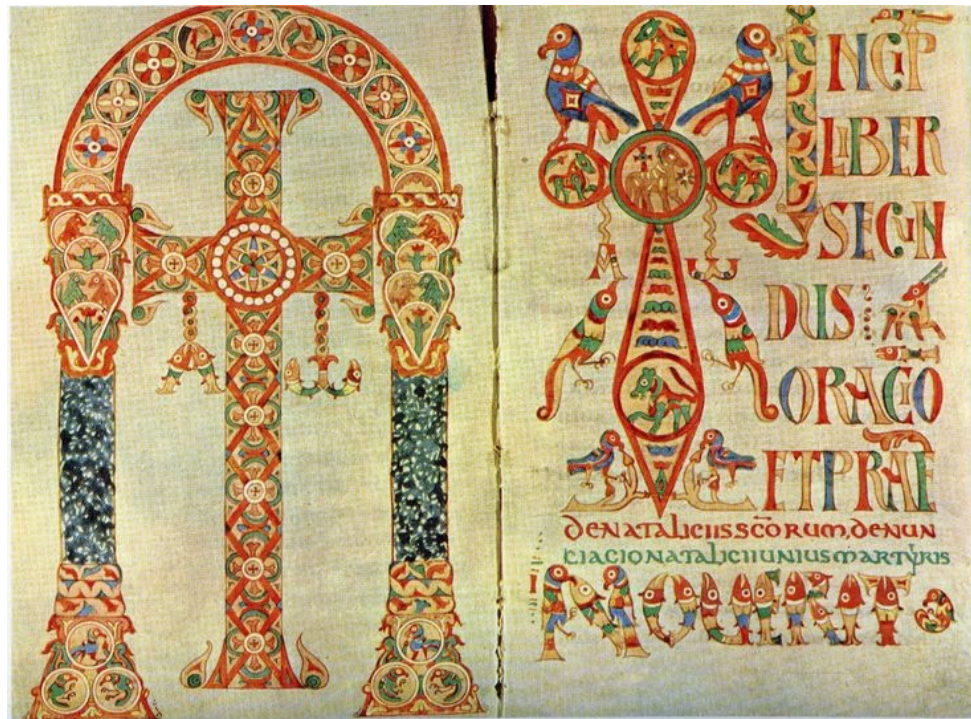 A ω
A ω
INCIP
LIBER
SECUN
DUS:
ORACIO
ET PRAE
DE NATALICIIS SCŌRUM. DENUN
CIACIO NATALICII UNIUS MARTYRIS
NOUERIT